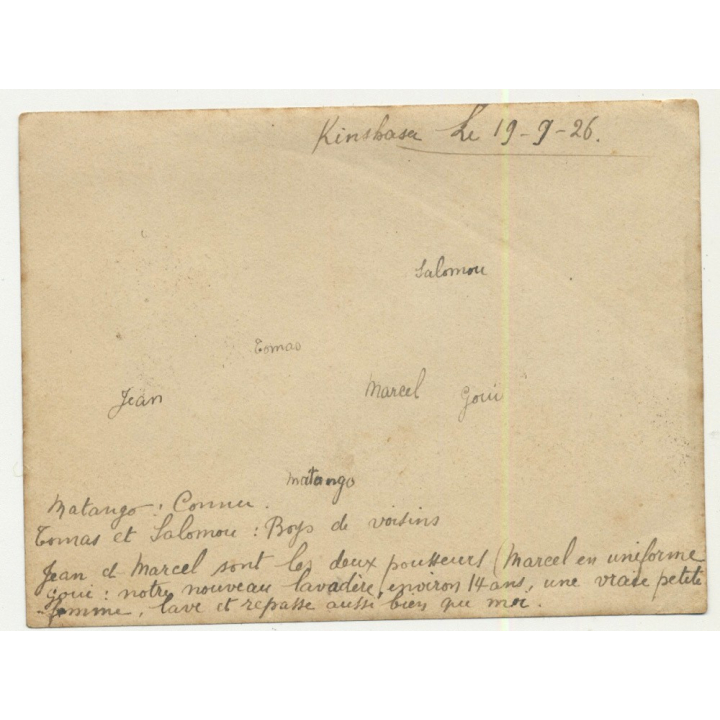 Kinshasa Le 19-9-26.
Salomou
Tomas
Jean
Marcel
Goui
Matango
Matango : Connu.
Tomas et Salomou : Boys de voisins
Jean et Marcel sont les deux pousseurs (Marcel en uniforme
Goui : notre nouveau lavadère, environ 14 ans, une vraie petite
femme, lave et repasse aussi bien que moi.